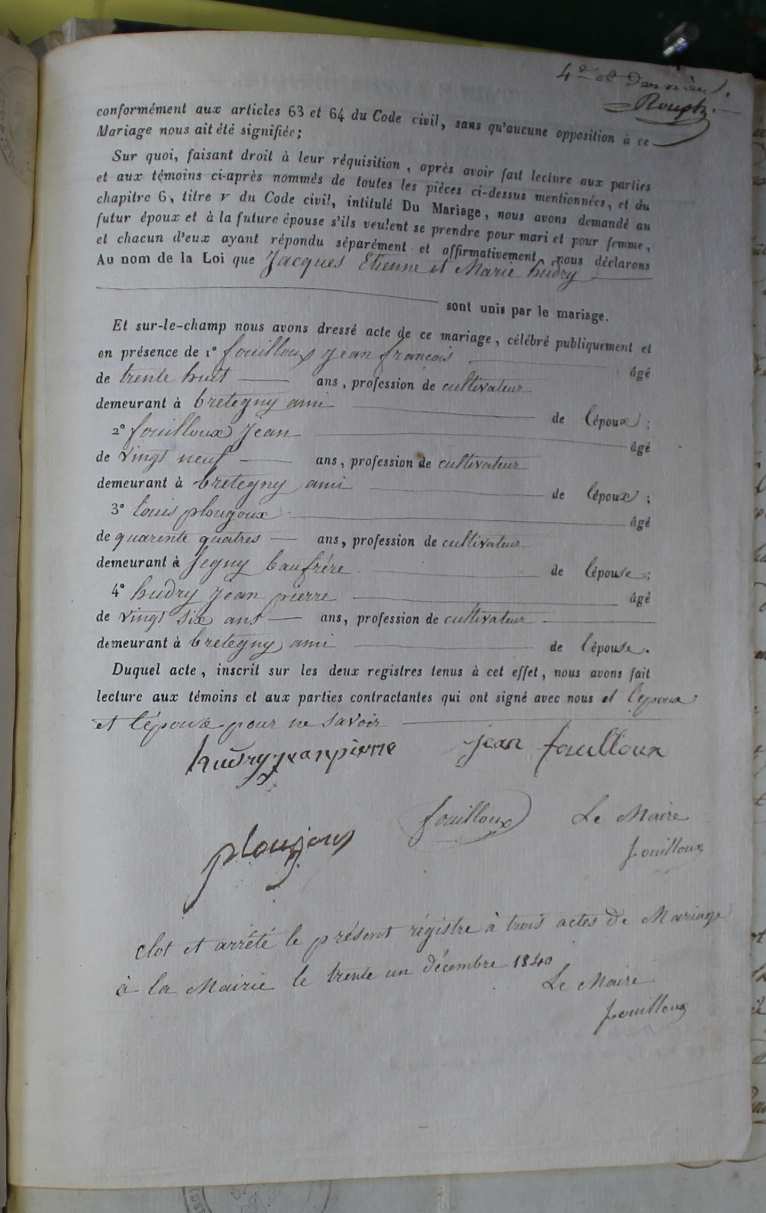 4e et dernière
conformément aux articles 63 et 64 du Code civil, sans qu'aucune opposition à ce
Mariage nous ait été signifiée;
Sur quoi, faisant droit à leur réquisition, après avoir fait lecture aux parties
et aux témoins ci-après nommés de toutes les pièces ci-dessus mentionnées, et du
chapitre 6, titre v du Code civil, intitulé Du Mariage, nous avons demandé au
futur époux et à la future épouse s'ils veulent se prendre pour mari et pour femme,
et chacun d'eux ayant répondu séparément et affirmativement, nous déclarons
Au nom de la Loi que Jacques Etienne et Marie hudry
sont unis par le mariage.
Et sur-le-champ nous avons dressé acte de ce mariage, célébré publiquement et
en présence de 1° fouilloux jean francois âgé
de trente huit ans, profession de cultivateur
demeurant à bretegny ami de lépoux;
2° fouilloux jean âgé
de vingt neuf ans, profession de cultivateur
demeurant à bretegny ami de lépoux;
3° Louis plougoux âgé
de quarente quatres ans, profession de cultivateur
demeurant à Segny baufrére de lépouse;
4° hudry jean pierre âgé
de vingt six ans ans, profession de cultivateur
demeurant à bretegny ami de lépouse.
Duquel acte, inscrit sur les deux registres tenus à cet effet, nous avons fait
lecture aux témoins et aux parties contractantes qui ont signé avec nous et lépoux
et lépoux pour ne savoir
hudry jean pierre jean fouilloux
ploujoux fouilloux Le Maire
fouilloux
clot et arrêté le présent régistre à trois actes de Mariage
à la Mairie le trente un décembre 1840
Le Maire
fouilloux